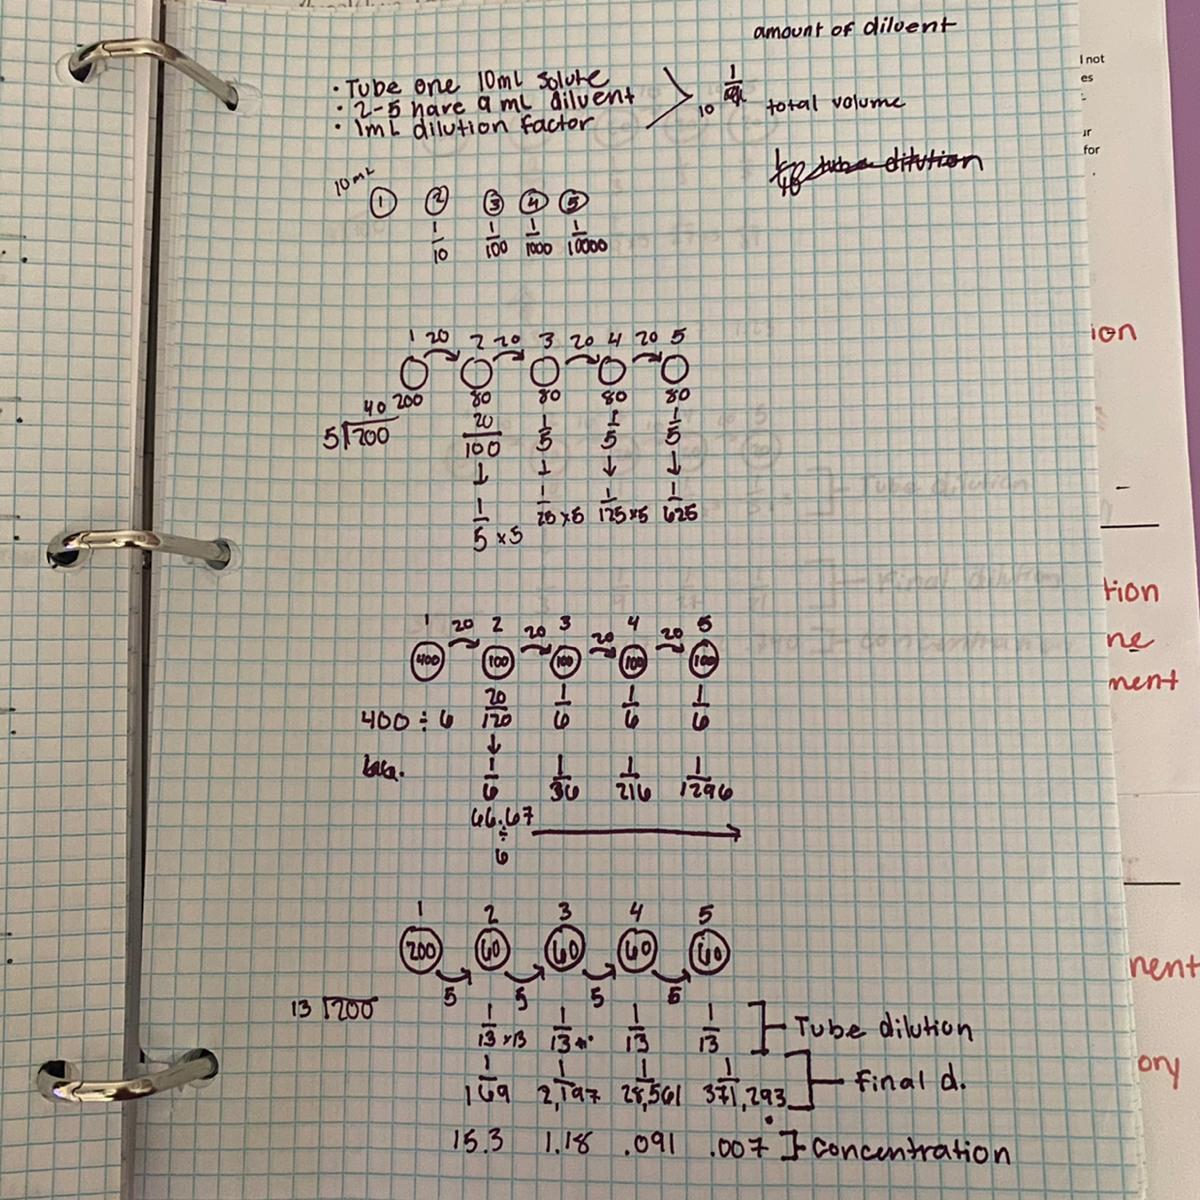 amount of diluent
• Tube one 10mL solute
• 2-5 have 9 mL diluent
• 1mL dilution factor
1
10
total volume
tube dilution
10mL
1 2 3 4 5
1/10 1/100 1/1000 1/10000
1 20 2 20 3 20 4 20 5
200 80 80 80 80
40
5 200
20/100 1/5 1/5 1/5
↓ ↓ ↓ ↓
1/5 x5 1/25 x5 1/125 x5 1/625
1 20 2 20 3 20 4 20 5
400 100 100 100 100
400 ÷ 6 20/120 1/6 1/6 1/6
↓
1/6 1/36 1/216 1/1296
66.67
÷
6
1 2 3 4 5
200 60 60 60 60
5 5 5 5
13 200
1/13 x13 1/13 1/13 1/13 Tube dilution
1/169 1/2,197 1/28,561 1/371,293 Final d.
15.3 1.18 .091 .007 Concentration
I not
es
ur
for
ion
tion
ne
ment
nent
ory